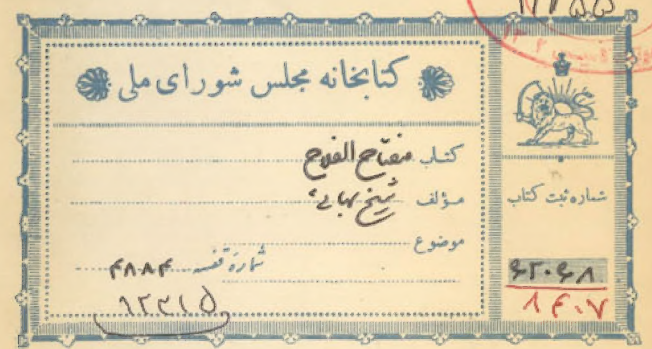 کتابخانه مجلس شورای ملی
کتاب مفتاح الفلاح
مؤلف شیخ بهائی
موضوع
شمارهٔ قفسه ۴۸۸۴
۱۲۳۱۵
شماره ثبت کتاب
۸۴۰۷